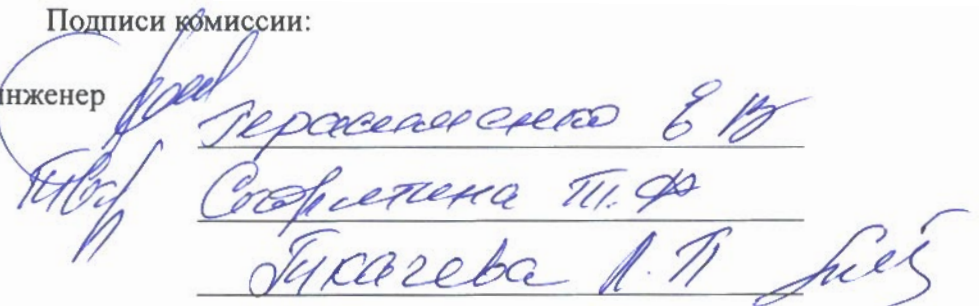 Подписи комиссии:
инженер Герасименко Е В
Т. Ф
Ткачева Л. П